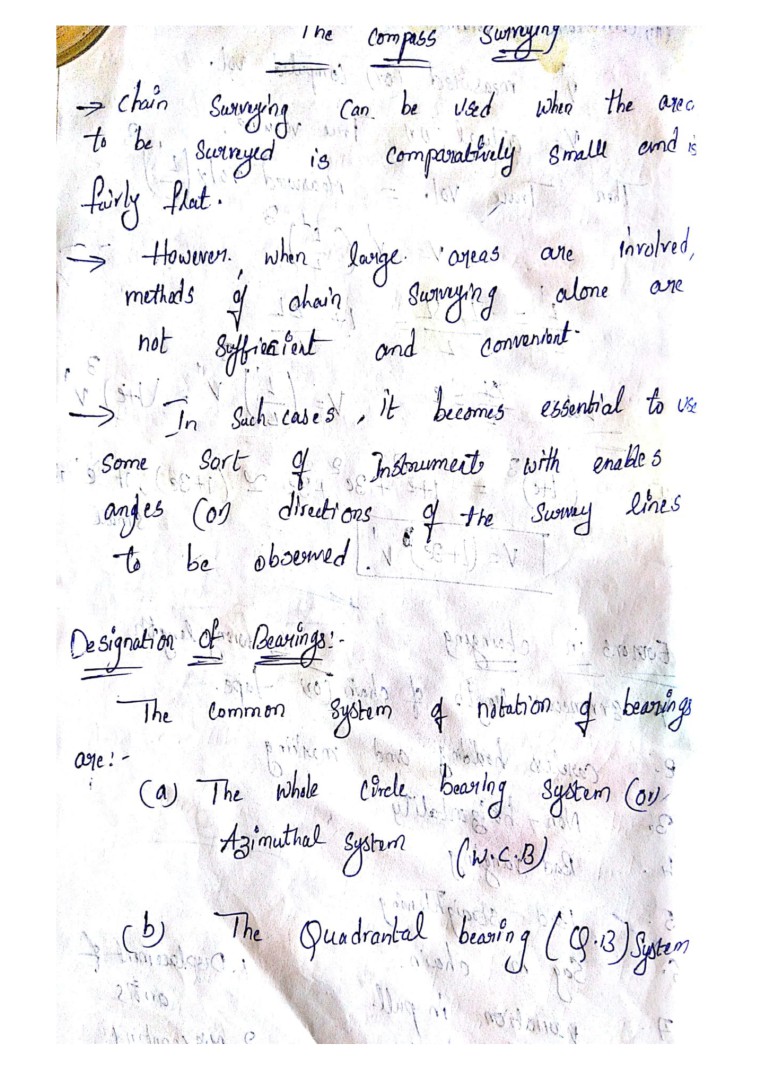 The Compass Surveying
→ Chain Surveying. Can be used when the area
to be surveyed is comparatively small and is
fairly flat.
→ However, when large areas are involved,
methods of chain Surveying alone are
not sufficient and convenient.
→ In such cases, it becomes essential to use
some sort of Instruments with enables
angles (or) directions of the survey lines
to be observed.
Designation of Bearings:-
The common system of notation of bearings
are:-
(a) The whole circle bearing system (or)
Azimuthal system (W.C.B)
(b) The Quadrantal bearing (Q.B) System